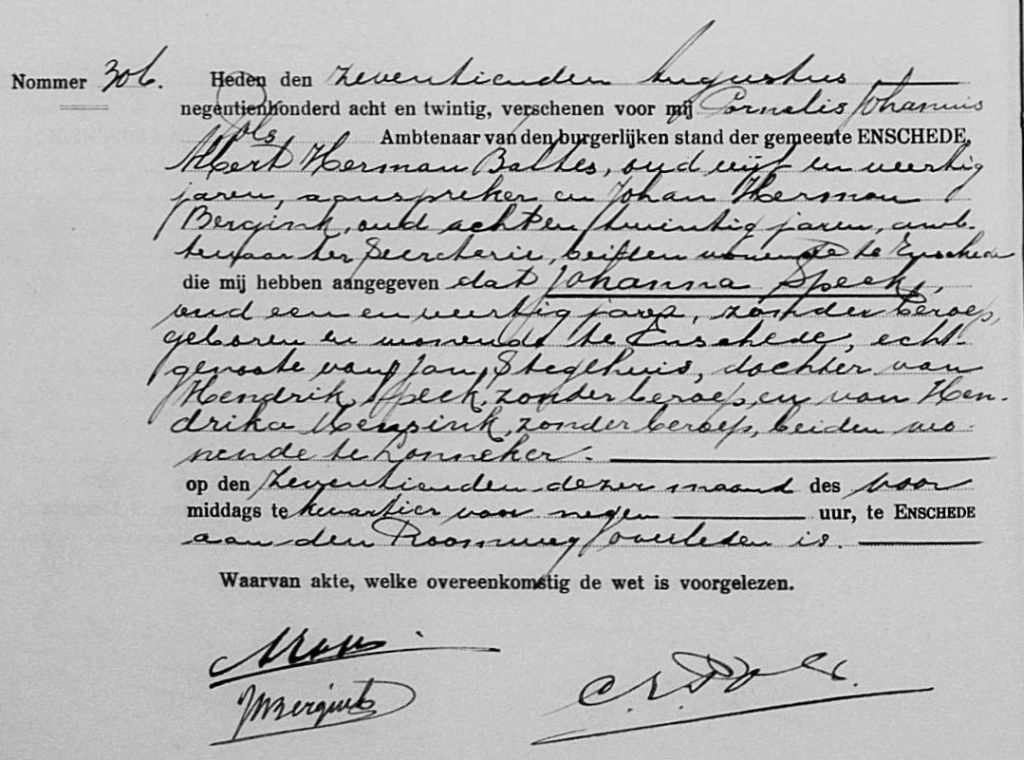 Nommer 306.
Heden den zeventienden Augustus
negentienhonderd acht en twintig, verschenen voor mij Cornelis Johannis
Pols Ambtenaar van den burgerlijken stand der gemeente ENSCHEDE,
Albert Herman Baltes, oud vijf en veertig
jaren, aanspreker en Johan Herman
Bergink, oud acht en twintig jaren, amb-
tenaar ter Secretarie, beiden wonende te Enschede
die mij hebben aangegeven dat Johanna Speck,
oud een en veertig jaren, zonder beroep,
geboren en wonende te Enschede, echt-
genoote van Jan Stegehuis, dochter van
Hendrik Speck, zonder beroep, en van Hen-
drika Mensink, zonder beroep, beiden wo-
nende te Lonneker.
op den zeventienden dezer maand des voor
middags te kwartier voor negen uur, te ENSCHEDE
aan den Roomweg overleden is.
Waarvan akte, welke overeenkomstig de wet is voorgelezen.
JHBergink
C.J. Pols.